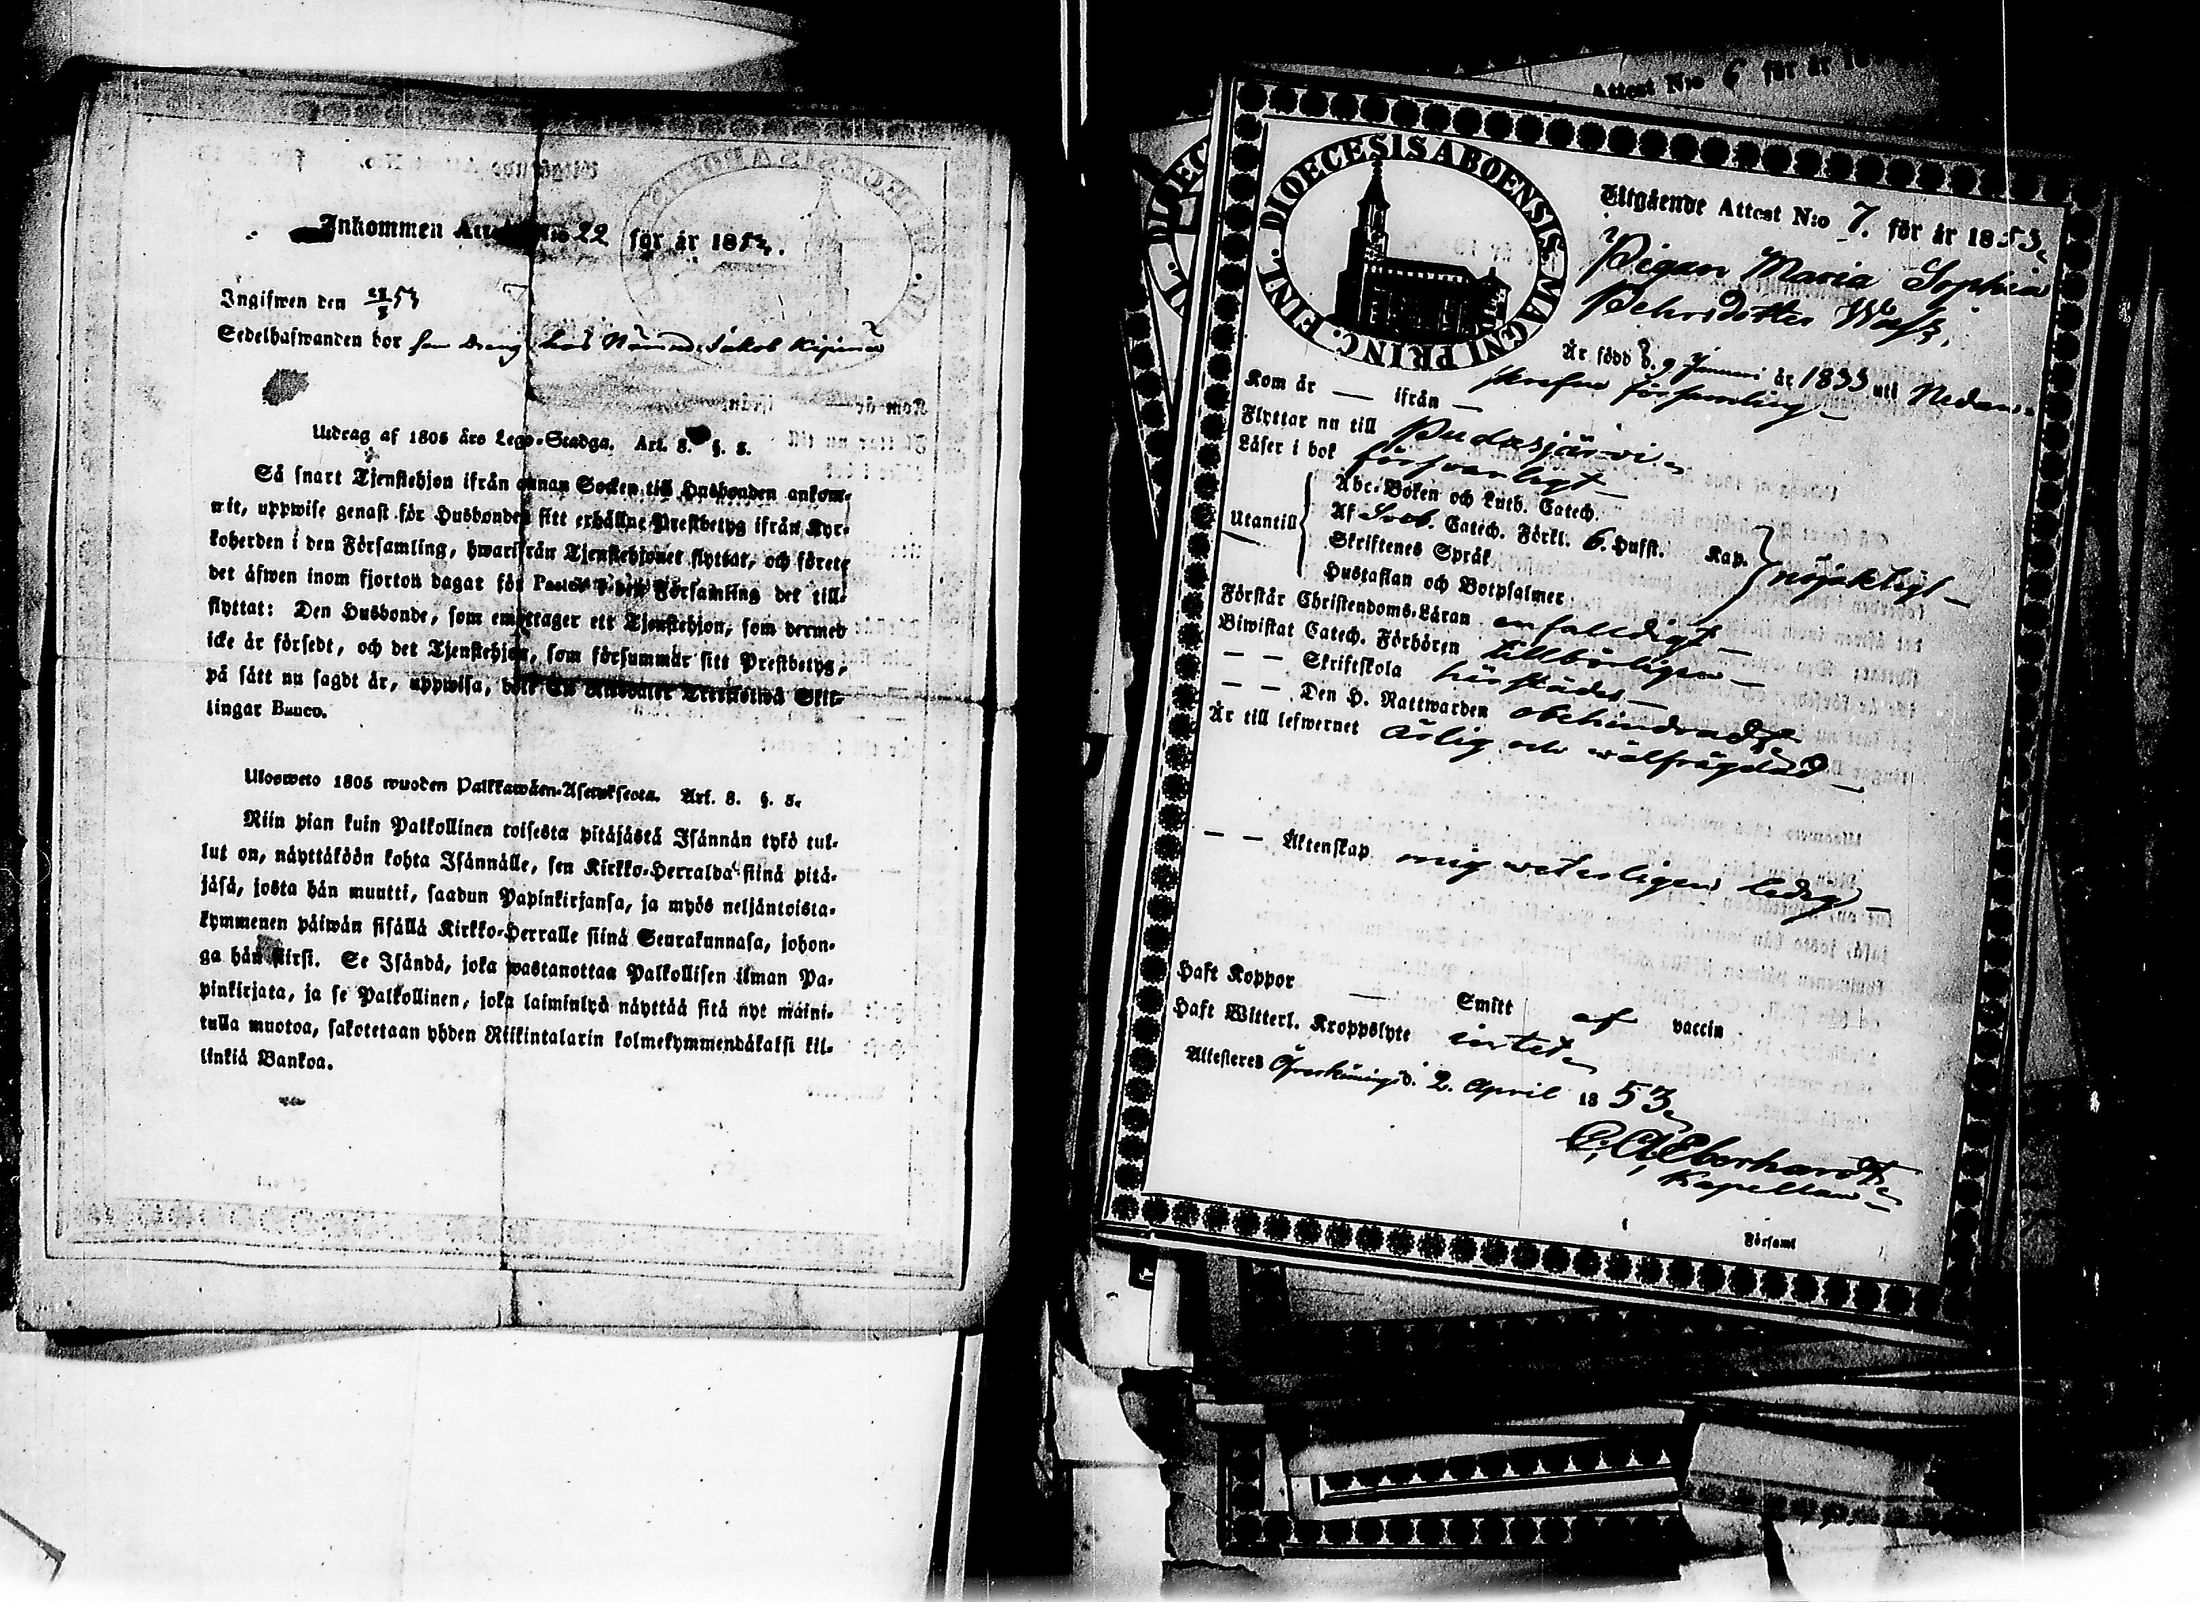 Inkommen Attest N:o 22 för år 1853.
Ingifwen den 21/5 53
Sedelhafwanden bor som dräng hos Jakob
Utdrag af 1805 års Lego-Stadga. Art. 8. §. 5.
Så snart Tjenstehjon ifrån annan Socken till Husbonden ankom-
mit, uppwise genast för Husbonden sitt erhållne Prestbetyg ifrån Kyr-
koherden i den Församling, hwarifrån Tjenstehjonet flyttat, och förete
det äfwen inom fjorton dagar för Pastor i den Församling det till-
flyttat: Den Husbonde, som emottager ett Tjenstehjon, som dermed
icke är försedt, och det Tjenstehjon, som försummar sitt Prestbetyg,
på sätt nu sagdt är, uppwisa, böte En Riksdaler Trettiotwå Skil-
lingar Banco.
Ulosweto 1805 wuoden Palkkawäen-Asetuksesta. Art. 8. §. 5.
Niin pian kuin Palkollinen toisesta pitäjästä Isännän tykö tul-
lut on, näyttäköön kohta Isännälle, sen Kirkko-Herralda siinä pitä-
jäsä, josta hän muutti, saadun Papinkirjansa, ja myös neljäntoista-
kymmenen päiwän sisällä Kirkko-Herralle siinä Seurakunnasa, johon-
ga hän siirsi. Se Isändä, joka wastanottaa Palkollisen ilman Pa-
pinkirjata, ja se Palkollinen, joka laiminlyö näyttää sitä nyt maini-
tulla muotoa, sakotetaan yhden Riikintalarin kolmekymmendäkaksi kil-
linkiä Bankoa.
Attest N:o 6 för år 18
DIOECESIS ABOENSIS MAGNI PRINC. FINL.
Utgående Attest N:o 7. för år 1853.
Pigan Maria Sophia
Pehrsdotter
Är född d. 9 Januari år 1833 uti Nedan-
församling
Kom år — ifrån —
Flyttar nu till Pudasjärvi
Läser i bok försvarligt
Utantill
Abc-Boken och Luth. Catech.
Af Sveb. Catech. Förkl. 6. Hufst. Kap.
Skriftenes Språk
Hustaflan och Botpsalmer
nöjaktigt
Förstår Christendoms-Läran enfalldigt
Biwistat Catech. Förhören tillbörligen
— — Skriftskola härstädes
— — Den H. Nattwarden obehindradt
Är till lefwernet ärlig och wälfräjdad
— — Äktenskap mig weterligen ledig
Haft Koppor — Smitt af vaccin
Haft Witterl. Kroppslyte intet
Attesteres d. 2. April 1853
Eberhardt
Kapellan
Församl